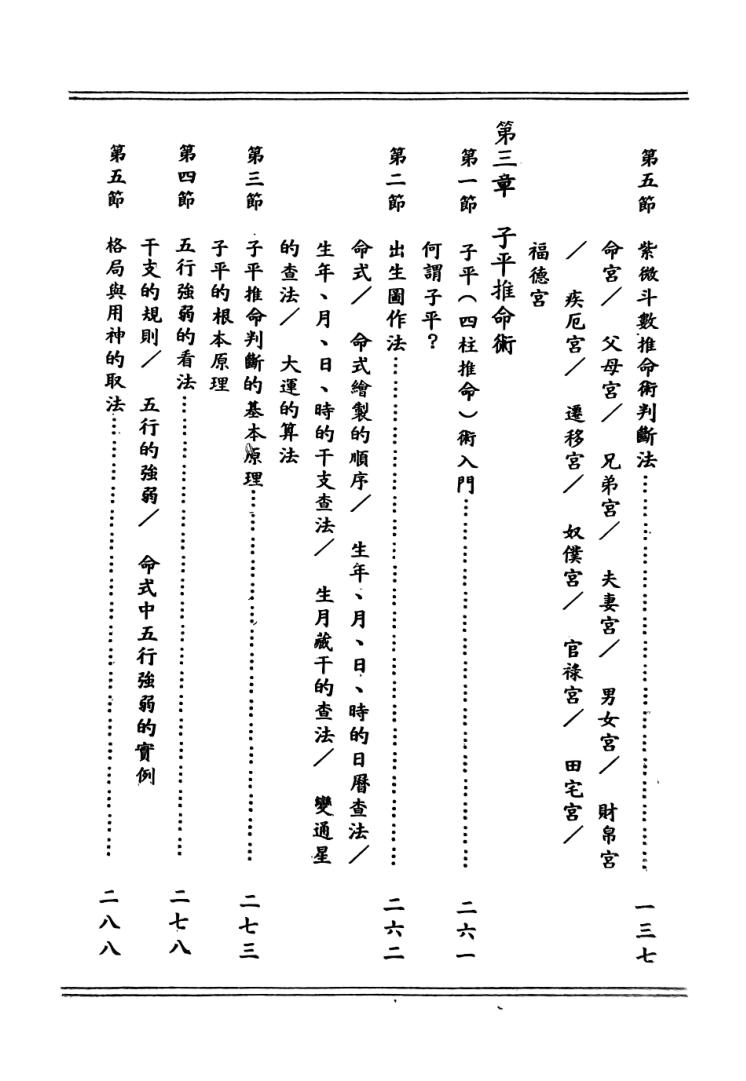 第五節 紫微斗數推命術判斷法……………………一三七
命宮／ 父母宮／ 兄弟宮／ 夫妻宮／ 男女宮／ 財帛宮
／ 疾厄宮／ 遷移宮／ 奴僕宮／ 官祿宮／ 田宅宮／
福德宮
第三章 子平推命術
第一節 子平(四柱推命)術入門……………………二六一
何謂子平?
第二節 出生圖作法……………………二六二
命式／ 命式繪製的順序／ 生年、月、日、時的日曆查法／
生年、月、日、時的干支查法／ 生月藏干的查法／ 變通星
的查法／ 大運的算法
第三節 子平推命判斷的基本原理……………………二七三
子平的根本原理
第四節 五行強弱的看法……………………二七八
干支的規則／ 五行的強弱／ 命式中五行強弱的實例
第五節 格局與用神的取法……………………二八八